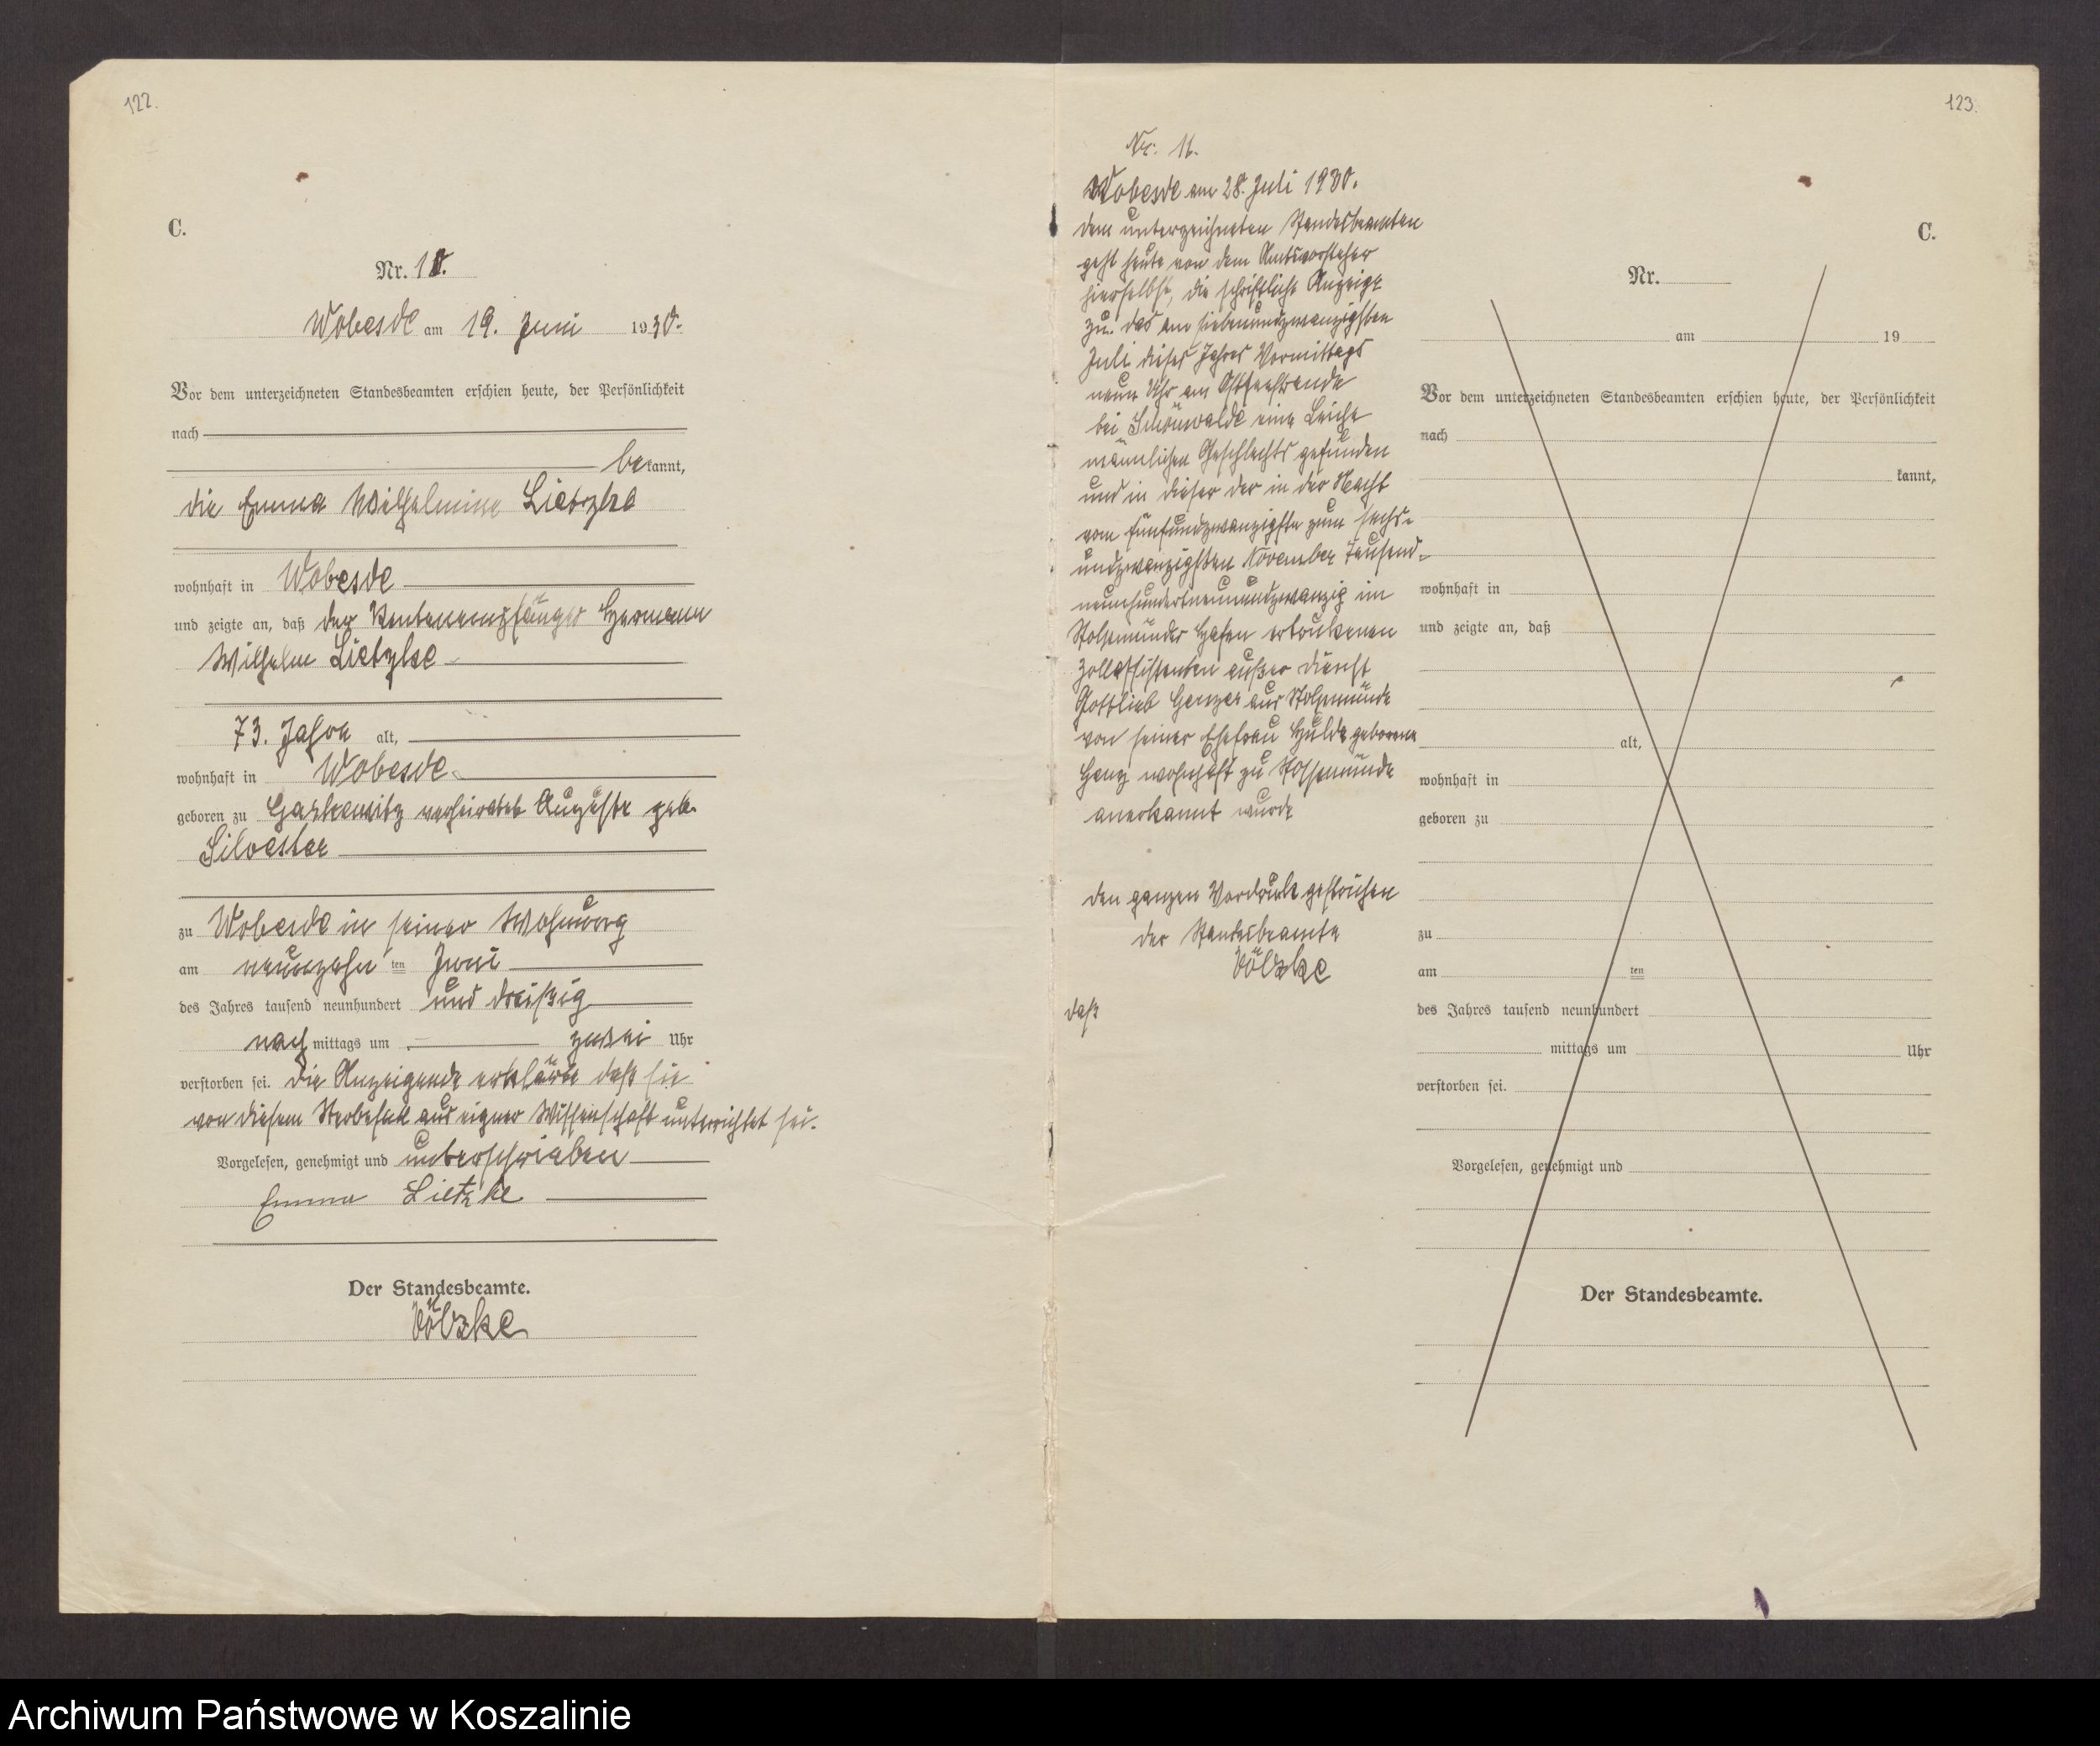 122.
C.
Nr. 10.
Wobesde am 19. Juni 1930.
Vor dem unterzeichneten Standesbeamten erschien heute, der Persönlichkeit
nach
bekannt,
die Emma Wilhelmine Lietzke
wohnhaft in Wobesde
und zeigte an, daß der Rentenempfänger Hermann
Wilhelm Lietzke
73. Jahre alt,
wohnhaft in Wobesde
geboren zu verheiratet Auguste geb.
Silvester
zu Wobesde in seiner Wohnung
am neunzehn ten Juni
des Jahres tausend neunhundert und dreißig
nach mittags um zwei Uhr
verstorben sei. Die Anzeigende erklärte daß sie
von diesem Sterbefall aus eigner Wissenschaft unterrichtet sei.
Vorgelesen, genehmigt und unterschrieben
Emma Lietzke
Der Standesbeamte.
Völzke
123.
Nr. 11.
Wobesde am 28. Juli 1930.
Dem unterzeichneten Standesbeamten
geht heute von dem Amtsvorsteher
hierselbst, die schriftliche Anzeige
zu. das am siebenundzwanzigsten
Juli dieses Jahres Vormittags
neun Uhr am Ostseestrande
bei Schönwalde eine Leiche
männlichen Geschlechts gefunden
und in dieser der in der Nacht
vom fünfundzwanzigste zum sechs-
undzwanzigsten November Tausend-
neunhundertneunundzwanzig im
Stolpmünder Hafen ertrunkenen
Zollassistenten außer Dienst
Gottlieb aus Stolpmünde
von seiner Ehefrau Hulda geborene
wohnhaft zu Stolpmünde
anerkannt wurde
den ganzen Vordruck gestrichen
der Standesbeamte
Völzke
daß
C.
Nr.
am 19
Vor dem unterzeichneten Standesbeamten erschien heute, der Persönlichkeit
nach
kannt,
wohnhaft in
und zeigte an, daß
alt,
wohnhaft in
geboren zu
zu
am ten
des Jahres tausend neunhundert
mittags um Uhr
verstorben sei.
Vorgelesen, genehmigt und
Der Standesbeamte.
Archiwum Państwowe w Koszalinie